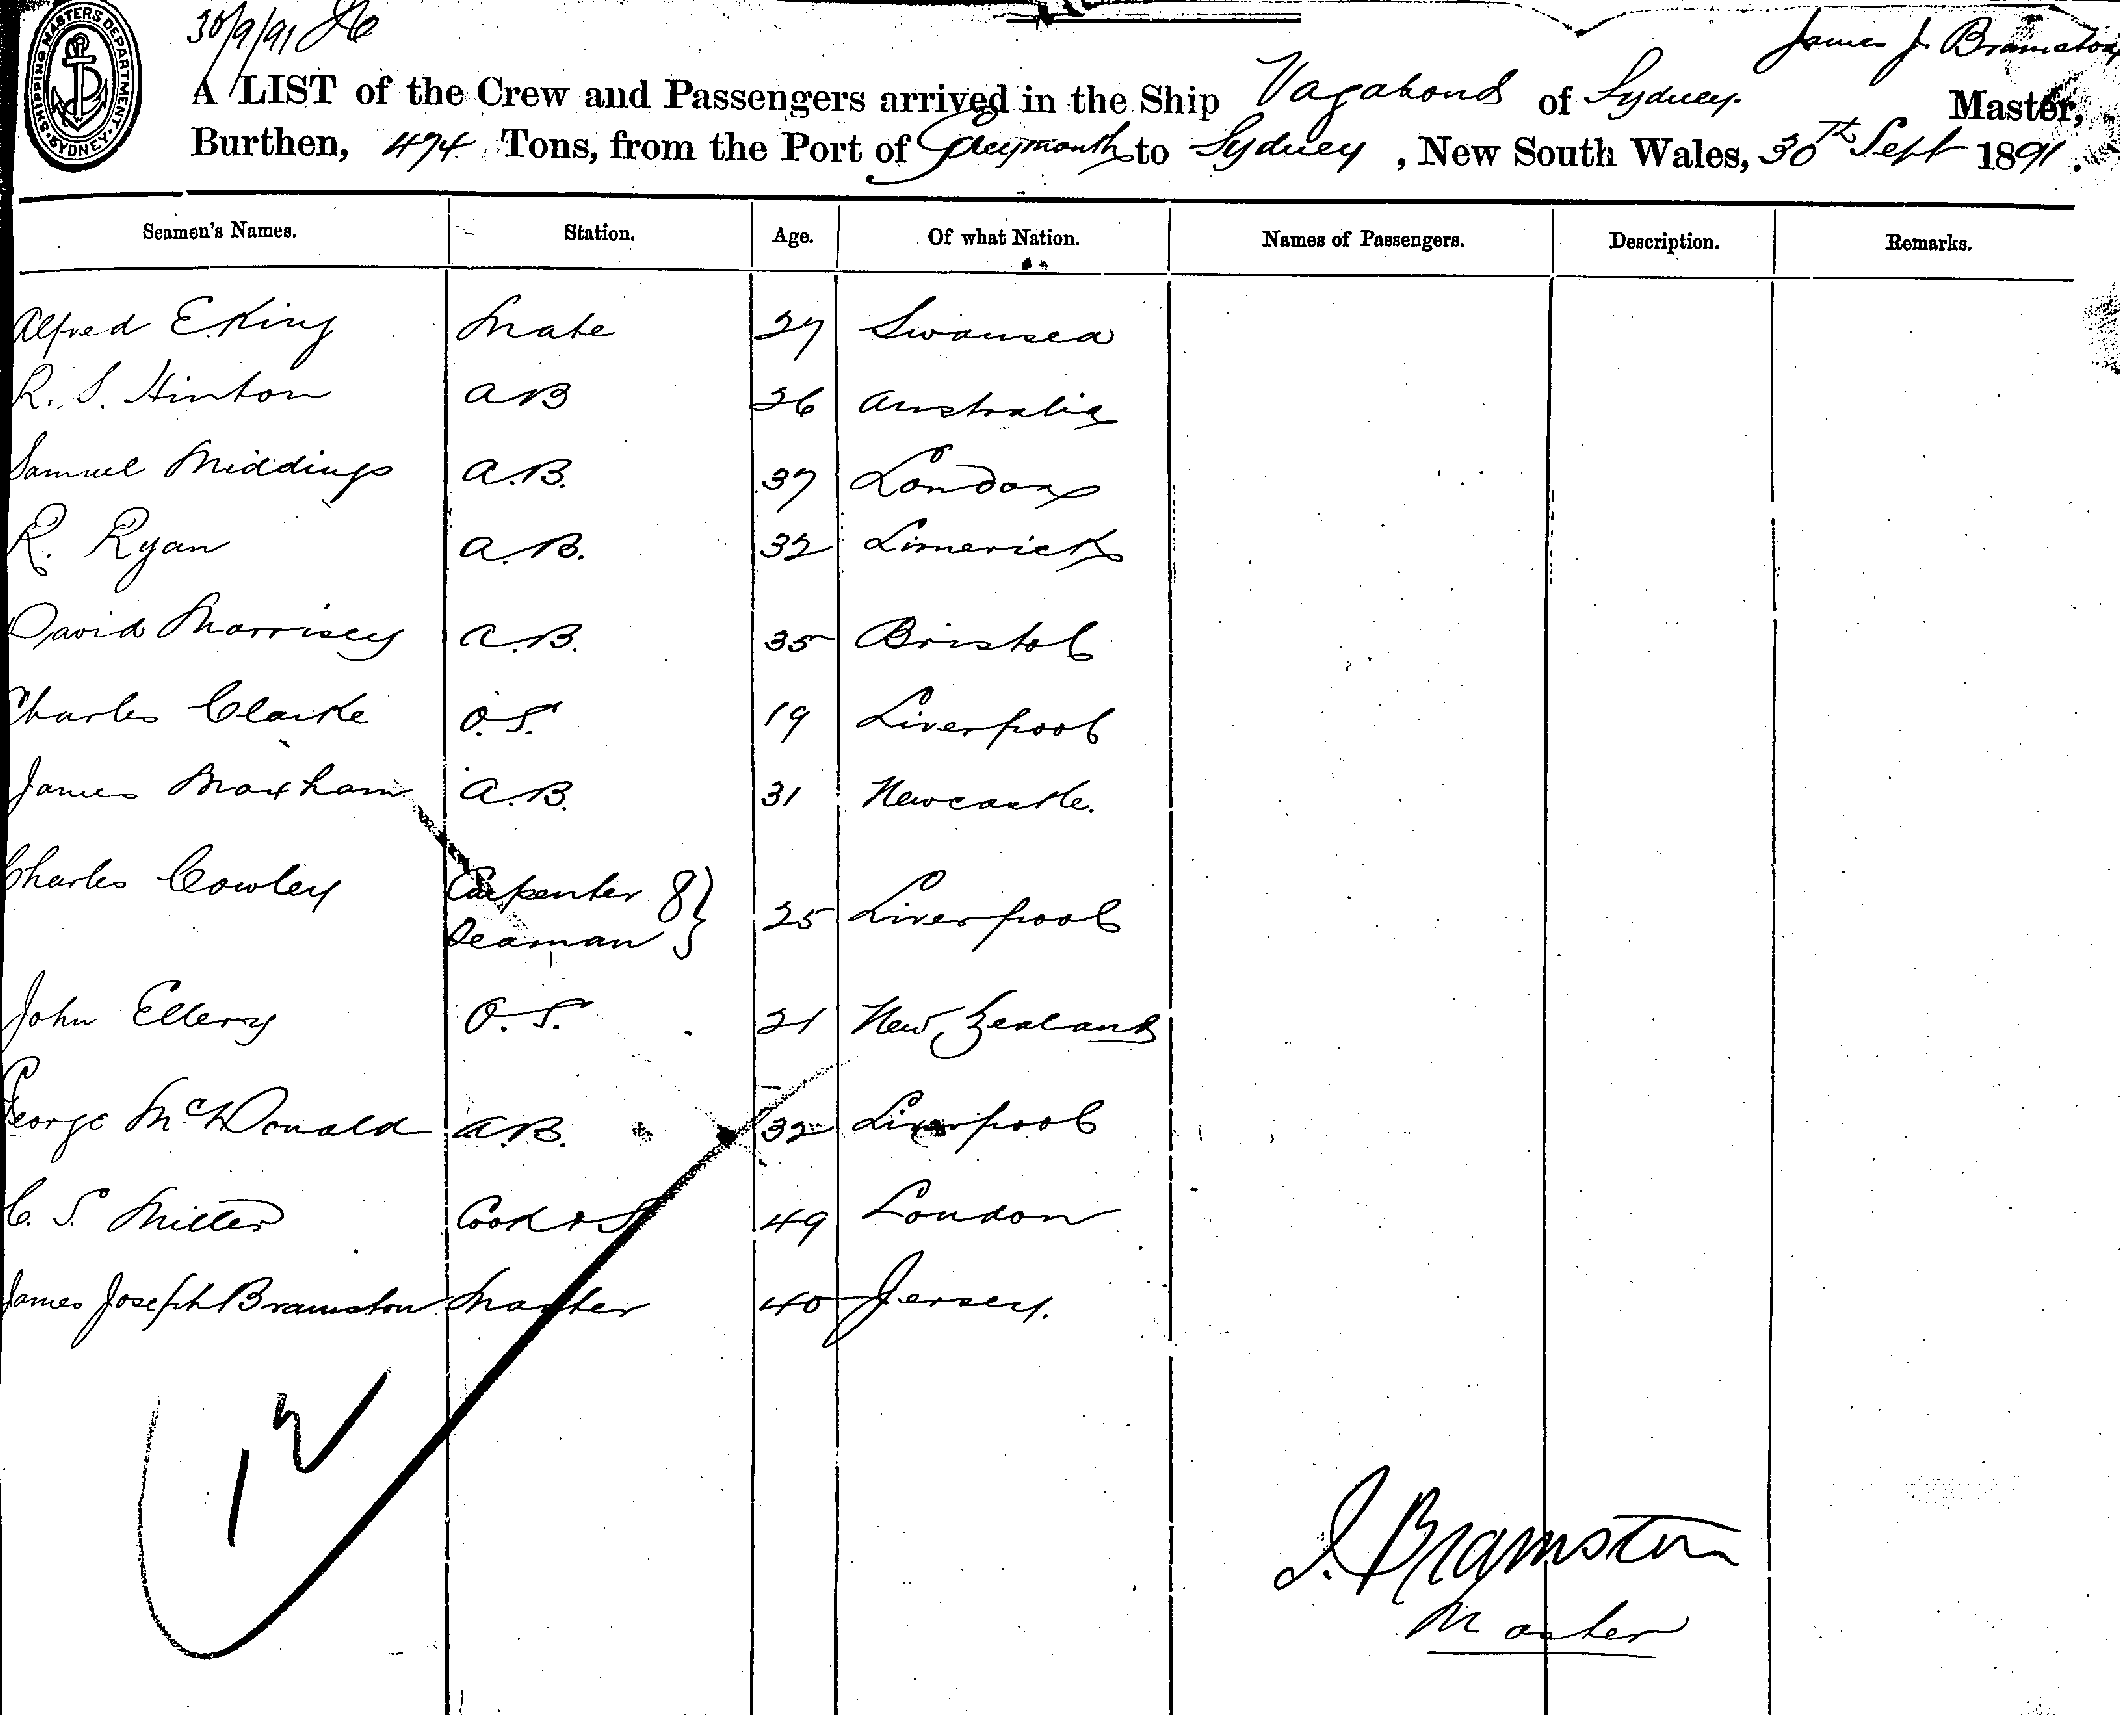 SHIPPING MASTERS DEPARTMENT. SYDNEY.
30/9/91
James J. Bramston
A LIST of the Crew and Passengers arrived in the Ship Vagabond of Sydney. Master,
Burthen, 474 Tons, from the Port of Greymouth to Sydney, New South Wales, 30th Sept 1891.
Seamen's Names. Station. Age. Of what Nation. Names of Passengers. Description. Remarks.
Alfred E. King Mate 27 Swansea
R. S. Hinton AB 26 Australia
Samuel Middings A.B. 37 London
R. Ryan A.B. 32 Limerick
David Morrisey A.B. 35 Bristol
Charles Clarke O.S. 19 Liverpool
James Moxham A.B. 31 Newcastle.
Charles Cowley Carpenter & } 25 Liverpool
Seaman
John Ellery O.S. 21 New Zealand
George McDonald A.B. 32 Liverpool
C. S. Miller Cook & S 49 London
James Joseph Bramston Master 40 Jersey.
12
J. Bramston
Master